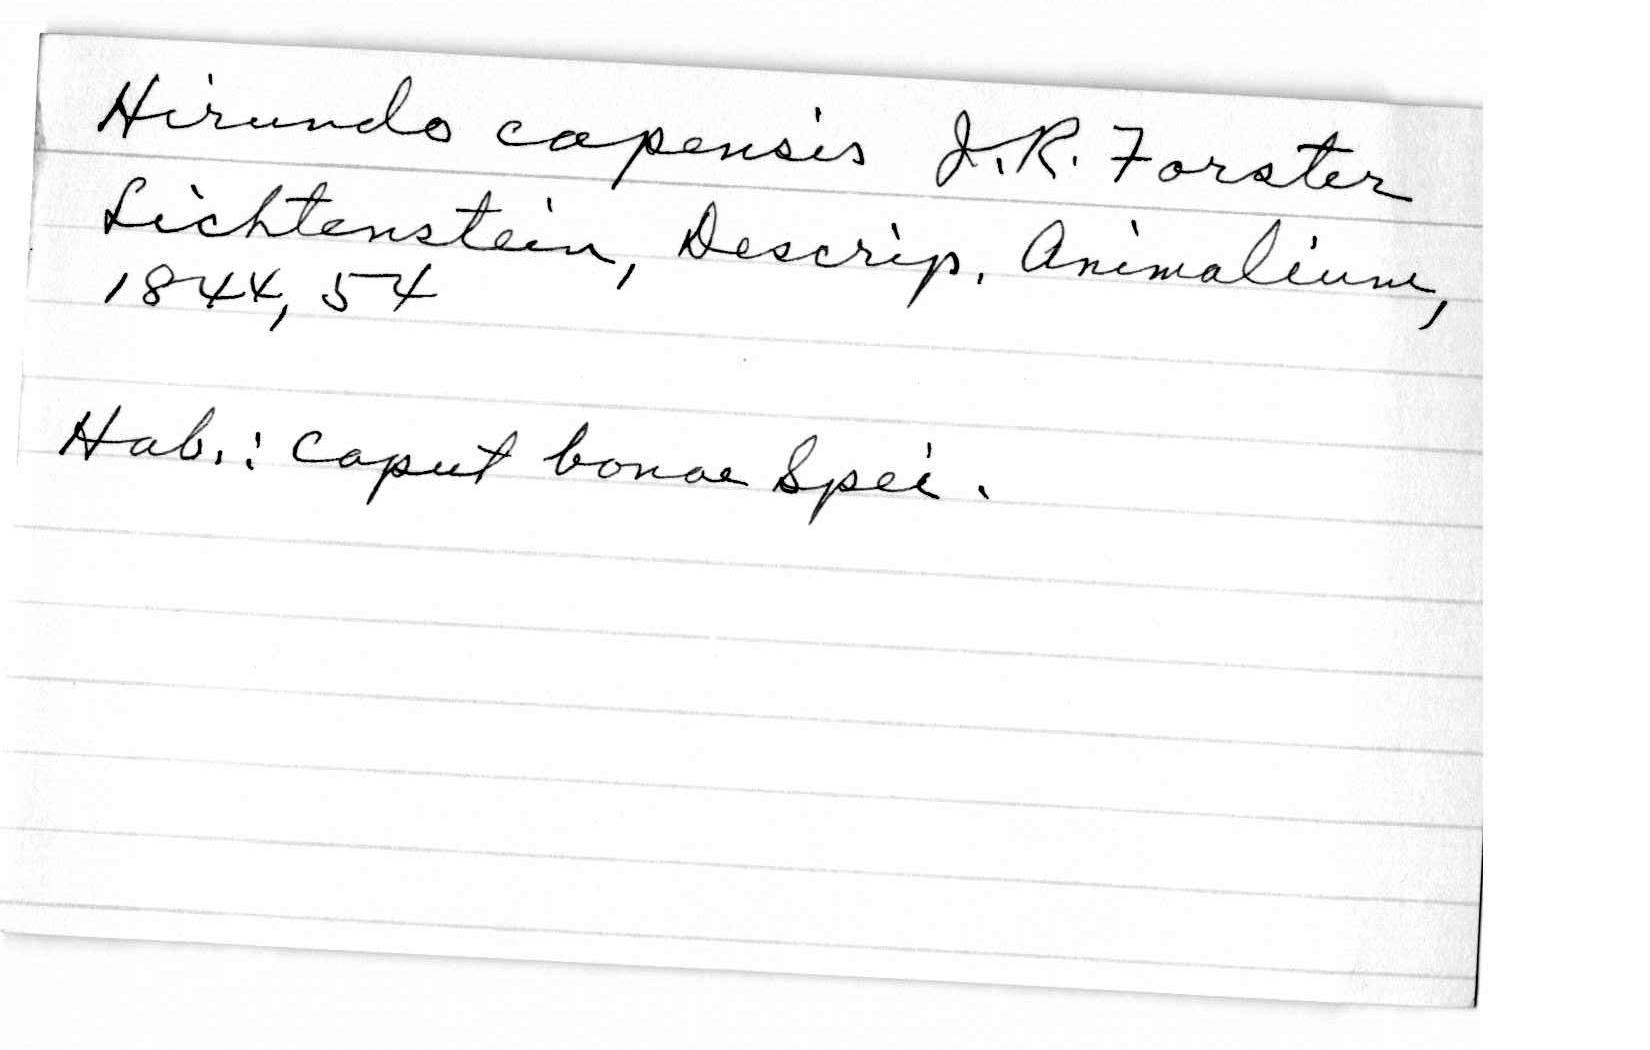 Hirundo capensis J.R. Forster
Lichtenstein, Descrip. Animalium,
1844, 54
Hab.: Caput bonae Spei.